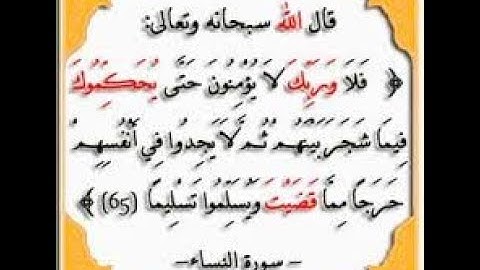 قال الله سبحانه وتعالى:
﴿ فَلَا وَرَبِّكَ لَا يُؤْمِنُونَ حَتَّى يُحَكِّمُوكَ
فِيمَا شَجَرَ بَيْنَهُمْ ثُمَّ لَا يَجِدُوا فِي أَنْفُسِهِمْ
حَرَجًا مِمَّا قَضَيْتَ وَيُسَلِّمُوا تَسْلِيمًا (65) ﴾
- سورة النساء-